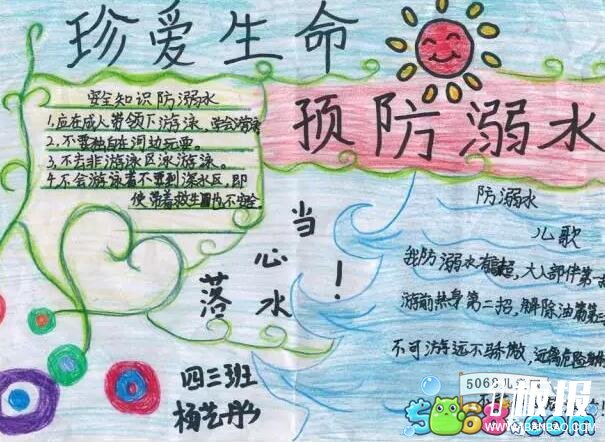 珍爱生命
预防溺水
安全知识防溺水
1.应在成人带领下游泳,学会游泳
2.不要独自在河边玩耍。
3.不去非游泳区泳游泳。
4.不会游泳着不要到深水区,即
使带着救生圈也不安全
当心
落水!
防溺水
儿歌
我防溺水有高超,大人部伴第一
游前热身第二招,解除油箭第三
不可游远不骄傲,远离危险
四三班
杨艺彤
5068儿
板报
WWW.BANBAO.COM
5068.com